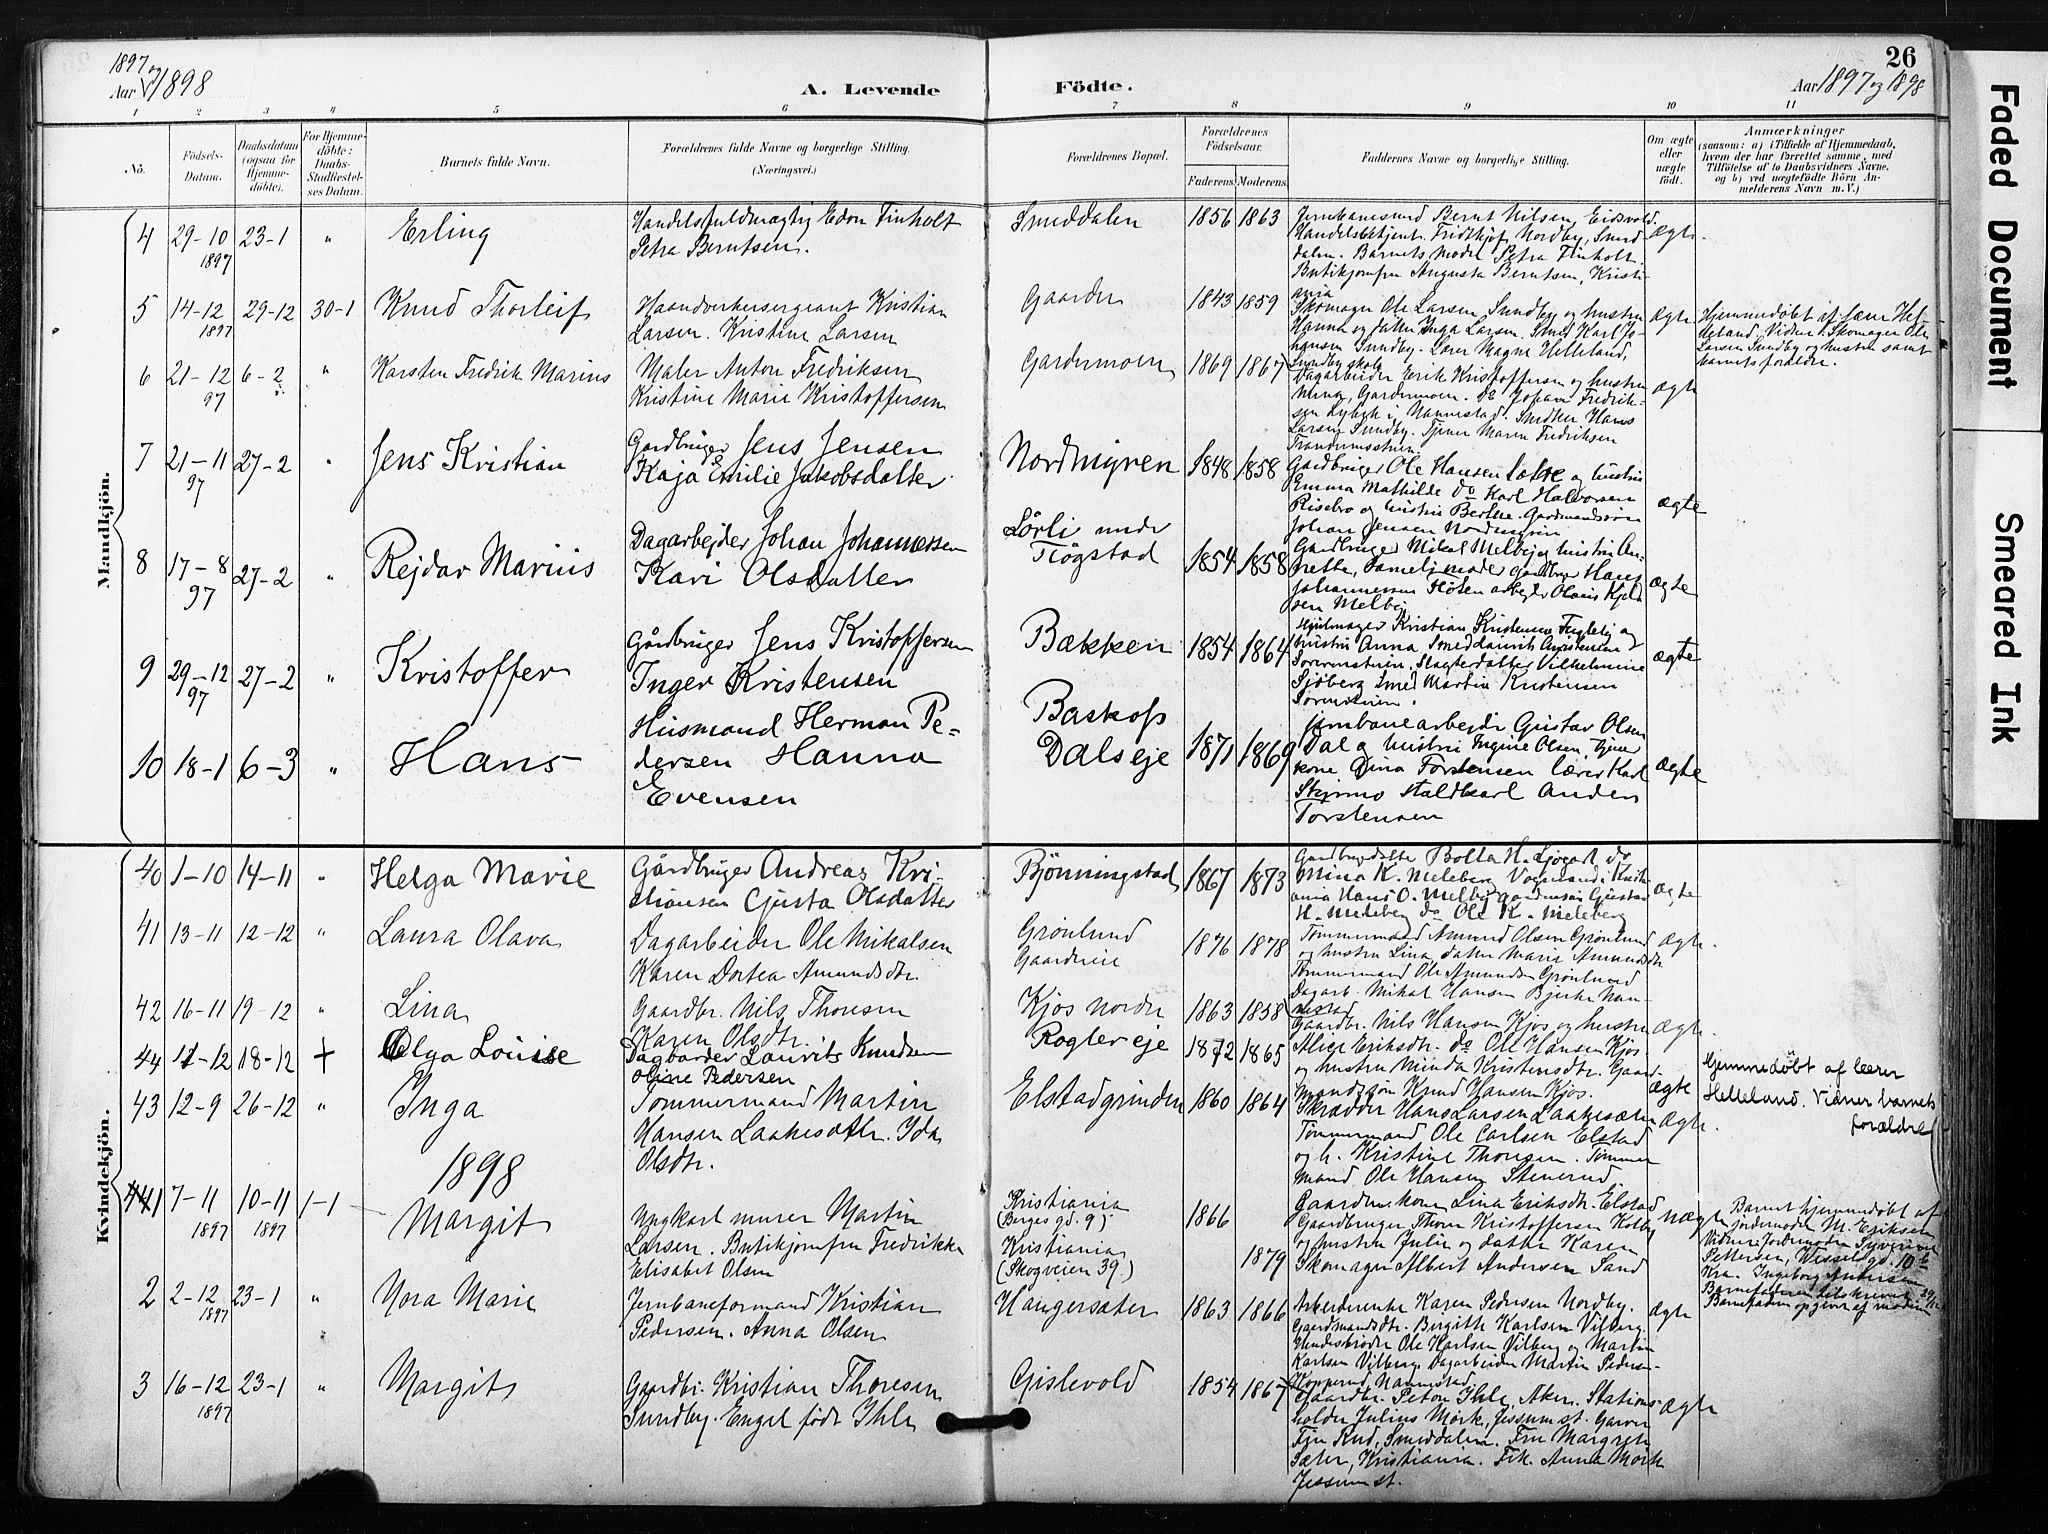 1897 og
Aar 1898
A. Levende
Födte.
26
Aar 1897 og 1898
1 2 3 4 5 6 7 8 9 10 11
No.
Födsels-
Datum.
Daabsdatum
(ogsaa for
Hjemme-
döbte).
For Hjemme-
döbte:
Daabs-
Stadfæstel-
ses Datum.
Barnets fulde Navn.
Forældrenes fulde Navne og borgerlige Stilling.
(Næringsvei.)
Forældrenes Bopæl.
Forældrenes
Födselsaar.
Faderens. Moderens.
Faddernes Navne og borgerlige Stilling.
Om ægte
eller
uægte
födt.
Anmærkninger
(saasom: a) i Tilfælde af Hjemmedaab,
hvem der har forrettet samme, med
Tilföielse af to Daabsvidners Navne.
og b) ved uægtefödte Börn An-
melderens Navn m. V.)
Mandkjön.
4 29-10 1897 23-1 " Erling
Handelsfuldmægtig Edon Finholt
Petra Berntsen.
Smeddalen 1856 1863
Jernbanesmed Bernt Nilsen, Eidsvold
Handelsbetjent Fridthjof Nordby, Smed
dalen. Barnets moder Petra Finholt.
Butikjomfru Augusta Berntsen, Kristi-
ania
ægte
5 14-12 1897 29-12 30-1 Knud Thorleif
Haandverkersergeant Kristian
Larsen. Kristine Larsen
Gaarder 1843 1859
Skomager Ole Larsen Sundby og hustru
Hanna og datter Inga Larsen. Smed Karl Jo-
hansen Sundby. Lærer Magne Helleland,
Sundby skole
ægte
Hjemmedøbt af lærer Hel-
leland. Vidner: Skomager Ole
Larsen Sundby og hustru samt
barnets forældre.
6 21-12 97 6-2 " Karsten Fredrik Marius
Maler Anton Fredriksen
Kristine Marie Kristoffersen
Gardermoen 1869 1867
Dagarbeider Erik Kristoffersen og hustru
Mina, Gardermoen. do Johan Fredrik-
sen Lybek i Nannestad. Snedker Hans
Larsen Sundby. Tjener Maren Fredriksen
Trandumsstuen
ægte
7 21-11 97 27-2 " Jens Kristian
Gardbruger Jens Jensen
Kaja Emilie Jakobsdatter
Nordmyren 1848 1858
Gardbruger Ole Hansen Løkke og hustru
Emma Mathilde do Karl Halvorsen
Risebro og hustru Berthe. Gardmandssøn
Johan Jensen Nordmyren
ægte
8 17-8 97 27-2 " Rejdar Marius
Dagarbejder Johan Johannessen
Kari Olsdatter
Lörli under
Tiögstad 1854 1858
Gardbruger Mikal Melby og hustru An-
nette, Familjemoder gardbruger Hans
Johannessen Hösen arbejder Olaus Kjeld
sen Melby
ægte
9 29-12 97 27-2 " Kristoffer
Gårdbruger Jens Kristoffersen
Inger Kristensen
Bækken 1854 1864
Hjulmager Kristian Kristensen Fugleby og
hustru Anna Smed Laurits Kristensen
Sorernstuen. Slagterdatter Vilhelmine
Sjöberg Smed Martin Kristensen
Sorernstuen.
ægte
10 18-1 6-3 " Hans
Husmand Herman Pe-
dersen Hanna
Evensen
Baskop
Dalseje 1871 1869
Jernbanearbejder Gustav Olsen
Dal og hustru Ingine Olsen tjener
kone Dina Torstensen lærer Karl
Skjenno staldkarl Anders
Torstensen
ægte
Kvindekjön.
40 1-10 14-11 " Helga Marie
Gårdbruger Andreas Kri-
stiansen Gusta Olsdatter
Bjönningstad 1867 1873
Gardbrugdatter Bolla H. Ljögort do
Mina K. Meleberg Vognmand i Kristi
ania Hans O. Melby gardmssøn Gustav
H. Meleberg do Ole K. Meleberg
ægte
41 13-11 12-12 " Laura Olava
Dagarbeider Ole Mikalsen
Karen Dortea Amundsdtr.
Grönlund
Gaardereie 1876 1878
Tømmermand Amund Olsen Grönlund
og hustru Lina, datter Marie Amundsdtr
Tømmermand Ole Amundsen Grönlund
Dagarb. Mikal Hansen Bjerke Nan-
nestad
ægte.
42 16-11 19-12 " Lina
Gaardbr. Nils Thoresen
Karen Olsdtr.
Kjos nordre 1863 1858
Gaardbr. Nils Hansen Kjos og hustru
Alice Eriksdtr. do Ole Hansen Kjos
og hustru Minda Kristensdtr. Gaard-
mandssøn Knud Hansen Kjos.
ægte.
44 11-12 18-12 + Olga Louise
Dagbarder Laurits Knudsen
Oline Pedersen
Rogler eje 1872 1865
ægte
Hjemmedøbt af lærer
Helleland. Vidner barnets
forældre
43 12-9 26-12 " Inga
Tømmermand Martin
Hansen Laakesætr. Ida
Olsdtr.
Elstadgrinden 1860 1864
Skrædder Hans Larsen Laakesæter
Tømmermand Ole Carlsen Elstad
og h. Kristine Thoresen. Tømmer
mand Ole Hansen Stenerud
Gaardm. kone Lina Eriksdtr. Elstad
ægte.
1898
1 7-11 1897 10-11 1897 1-1 Margit
Ungkarl murer Martin
Larsen. Butikjomfru Fredrikke
Elisabet Olsen
Kristiania
(Borges gd. 9)
Kristiania
(Skogveien 39.)
1866 1879
Gaardbruger Thore Kristoffersen Kolby
og hustru Julie og datter Karen
Skomager Albert Andersen Sand
uægte
Barnet hjemmedøbt af
jordemoder M. Eriksen
Vidner: Jordemoder Syverine
Pettersen, Wesselsgd. 10 b
Kra. Ingeborg Andersen
Barnefaderen tilskrevet 29/12
Barnefaderen opgivet af moderen
2 2-12 1897 23-1 " Nora Marie
Jernbaneformand Kristian
Pedersen. Anna Olsen
Haugersæter 1863 1866
Arbeiderenke Karen Pedersen Nordby.
Gaardmandsdtr. Birgitte Karlsen Vilberg.
Hendes brødre Ole Karlsen Vilberg og Martin
Karlsen Vilberg. Dagarbeider Martin Peders-
Kopperud, Nannestad.
ægte
3 16-12 1897 23-1 " Margit
Gaardbr. Kristian Thoresen
Sundby. Engel født Ihle
Gislevold 1854 1867
Gaardbr. Peton Ihle, Aker. Stations-
holder Julius Mørk, Jessum st. Garver
Finn Rud, Smeddalen. Fru Margrete
Sæter, Kristiania. Frk. Anna Mørk
Jessum st.
ægte
Faded Document
Smeared Ink